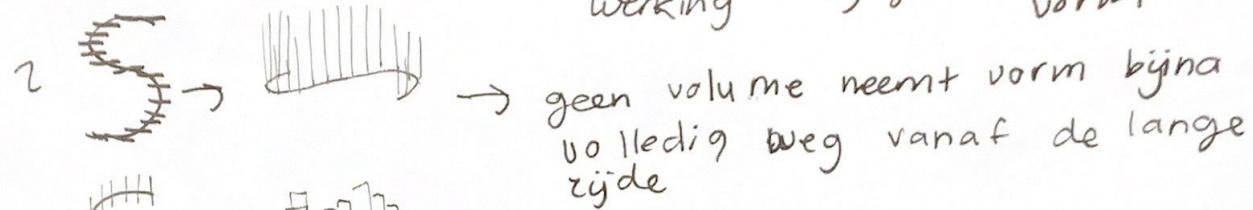 werking
2 → → geen volume neemt vorm bijna
volledig weg vanaf de lange
zijde